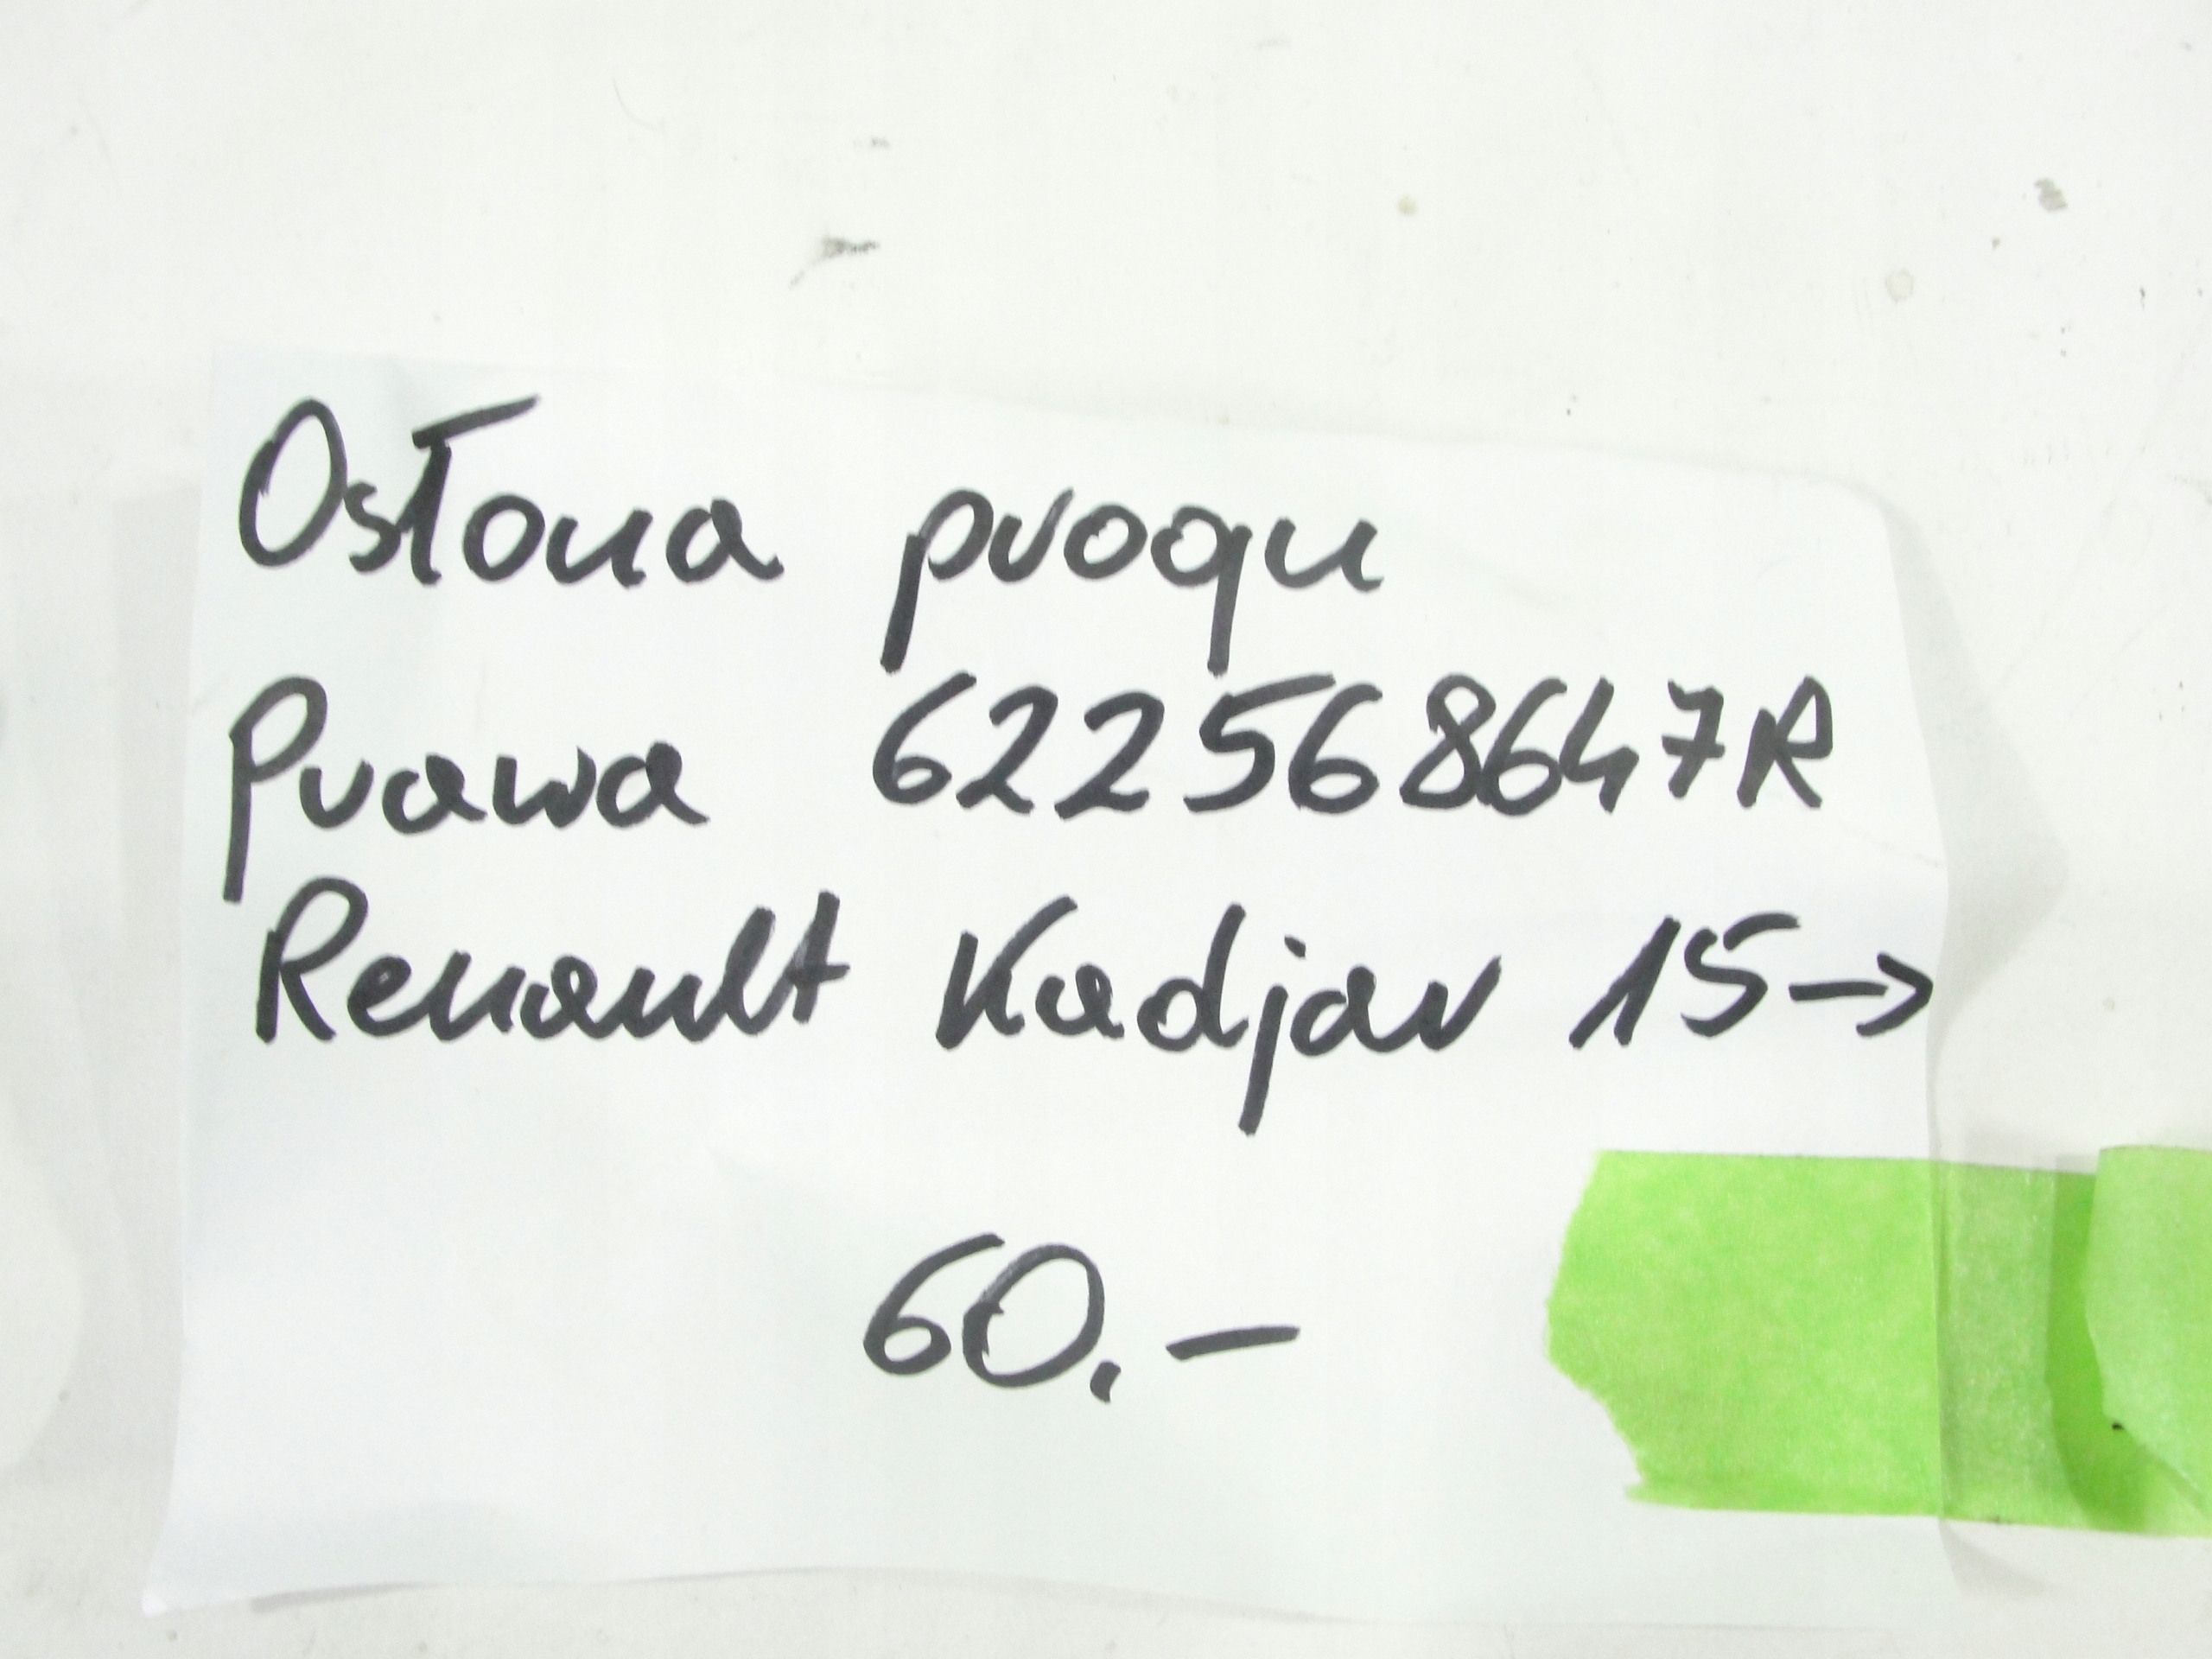 Osłona progu
Prawa 622568647R
Renault Kadjar 15→
60.-